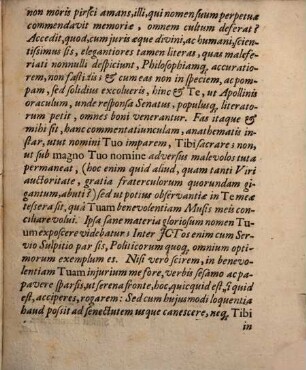 non morit pirsci amans, illi, qui nomen suum perpetuæ
commendavit memoriæ, omnem cultum deferat?
Accedit, quod, cum juris æque divini, ac humani, scien-
tissimus sis, elegantiores tamen literas, quas malefe-
riati nonnulli despiciunt, Philosophiamq́; accuratio-
rem, non fastidis; & cum eas non in speciem, ac pom-
pam, sed solidius excolueris, hinc & Te, ut Apollinis
oraculum, unde responsa Senatus, populusq́; literato-
rum petit, omnes boni venerantur. Fas itaque &
mihi sit, hanc commentatiunculam, anathematis in-
star, utut nomini Tuo imparem, Tibi sacrare: non,
ut sub magno Tuo nomine adversus malevolos tuta
permaneat, (hoc enim quid aliud, quam tanti Viri
auctoritate, gratia fraterculorum quorundam gi-
gantum, abuti?) sed ut potius observantiæ in Te meæ
tessera sit, quâ Tuam benevolentiam Musis meis con-
ciliare volui. Ipsa sane materia gloriosum nomen Tu-
um exposcere videbatur: Inter JCtos enim cum Ser-
vio Sulpitio par sis, Politicorum quoq́; omnium opti-
morum exemplum es. Nisi verò scirem, in benevo-
lentiam Tuam injurium me fore, verbis sesamo ac pa-
pavere sparsis, ut serena fronte, hoc, quicquid est, si quid
est, acciperes, rogarem: Sed cum hujusmodi loquentia
haud possit ad senectutem usque canescere, neq́; Tibi
in